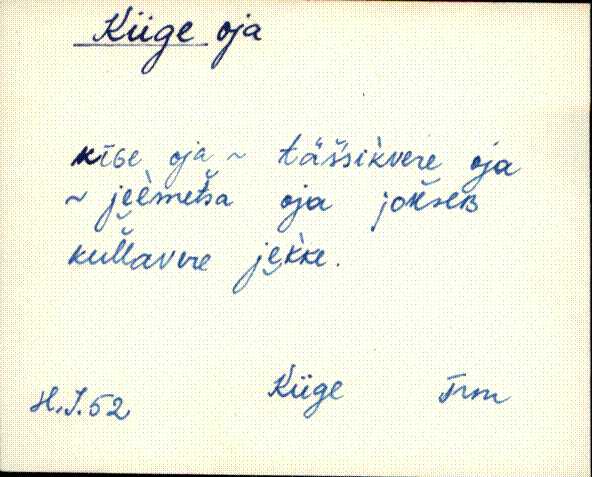 Kiige oja
kīɢe oja ~ täšsikvere oja
~ jeèmetša oja jokseʙ
kullavere jekke.
H.J.52 Kiige Trm